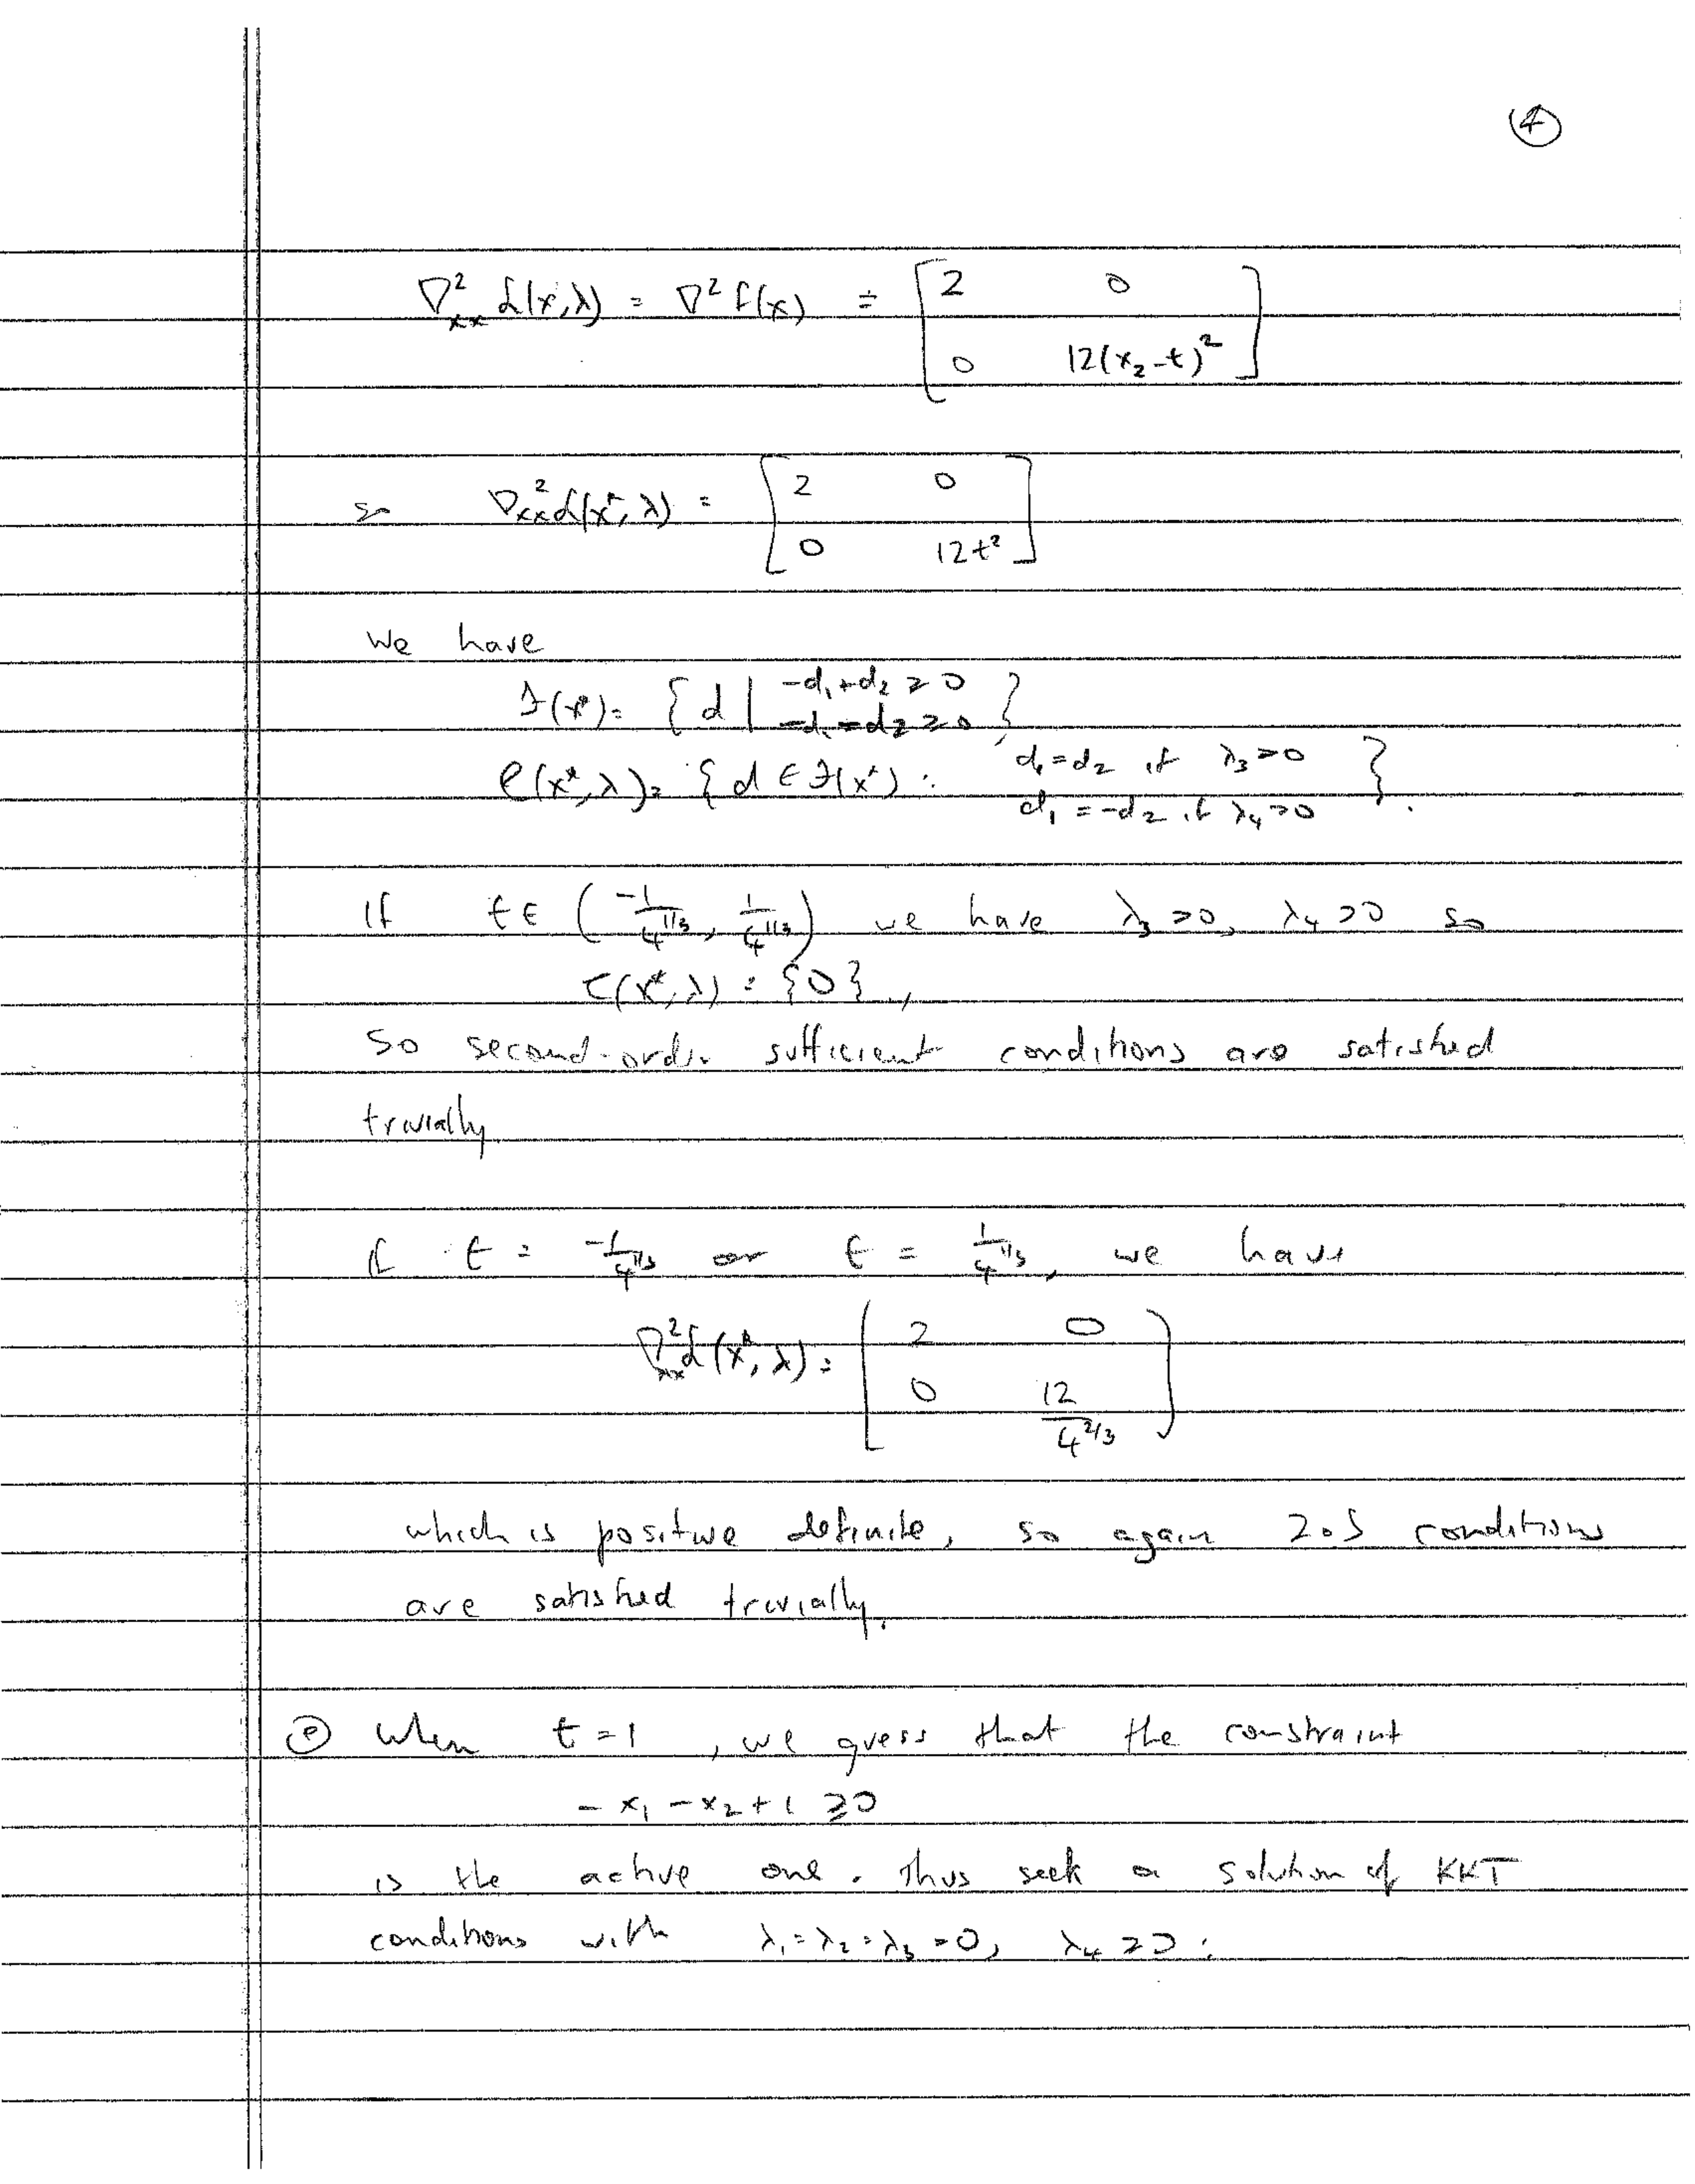 ④
∇²ₓₓ L(x,λ) = ∇² f(x) = [ 2 0
0 12(x₂-t)² ]
so ∇²ₓₓ L(x*, λ) = [ 2 0
0 12t² ]
We have
F(x*) = { d | -d₁+d₂ ≥ 0
-d₁-d₂ ≥ 0 }
C(x*,λ) = { d ∈ F(x*) : d₁=d₂ if λ₃>0
d₁ = -d₂ if λ₄>0 }.
If t ∈ ( -1/4^{1/3}, 1/4^{1/3} ) we have λ₃ >0, λ₄ >0 so
C(x*,λ) = {0},
So second-order sufficient conditions are satisfied
trivially
If t = -1/4^{1/3} or t = 1/4^{1/3}, we have
∇²ₓₓ L(x*, λ) = [ 2 0
0 12/4^{2/3} ]
which is positive definite, so again 2oS conditions
are satisfied trivially.
ⓔ When t=1, we guess that the constraint
- x₁ - x₂ + 1 ≥ 0
is the active one. Thus seek a solution of KKT
conditions with λ₁=λ₂=λ₃=0, λ₄ ≥ 0: